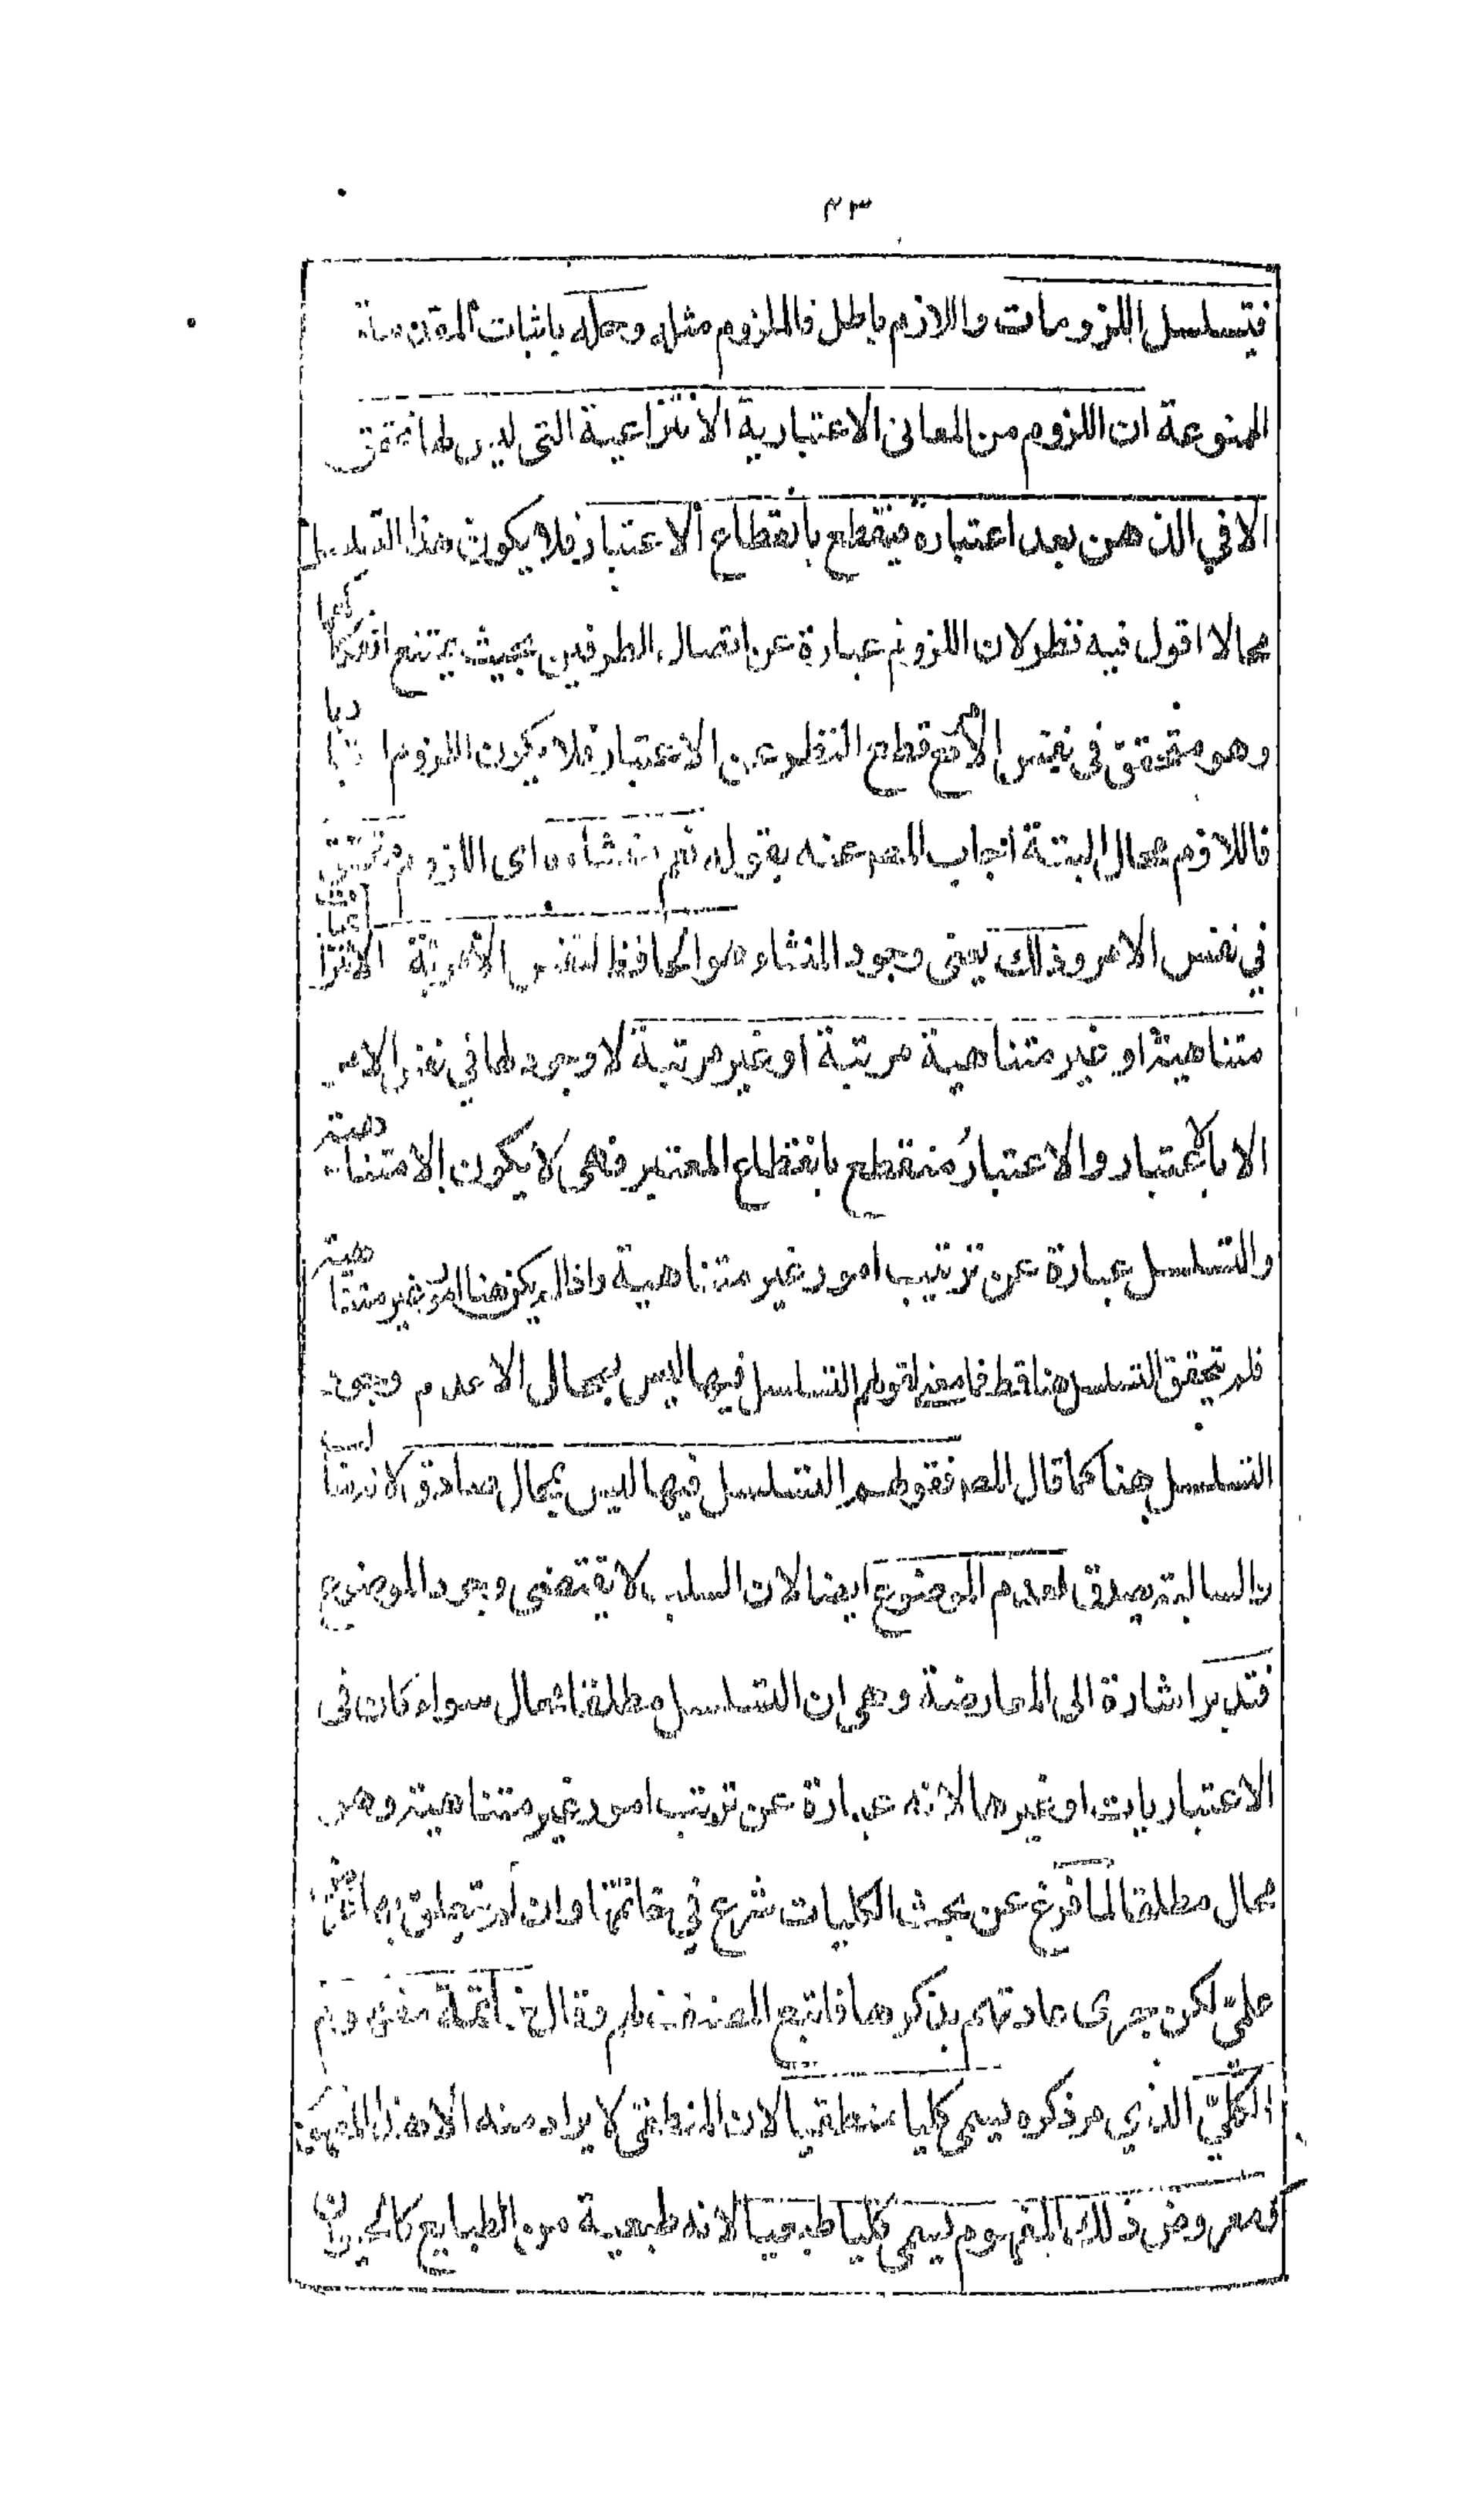 ٢٣
فتسلسل اللزومات واللازم باطل فالملزوم مثله وحله باثبات المقدمة
الممنوعة ان اللزوم من المعانى الاعتبارية الانتزاعية التى ليس لها تحقق
الا في الذهن بعد اعتباره فينقطع بانقطاع الاعتبار فلا يكون هذا التسلسل
محالا اقول فيه نظر لان اللزوم عبارة عن اتصال الطرفين بحيث يمتنع انفكاكهما
وهو متحقق فى نفس الامر مع قطع النظر عن الاعتبار فلا يكون اللزوم اعتباريا
فاللازم محال البتة اجاب المصر عنه بقوله نعم منشاءه اى اللزوم متحقق
في نفس الامر وذلك يعنى وجود المنشاء هو الحافظ لنفس الامرية الانتزاعيات
متناهية او غير متناهية مرتبة او غير مرتبة لا وجود لها في نفس الامر
الا بالاعتبار والاعتبارُ منقطع بانقطاع المعتبر فهى لا يكون الا متناهية
والتسلسل عبارة عن ترتيب امور غير متناهية واذا لم يكن هنا امور غير متناهية
فلم تحقق التسلسل هنا قط فما معنى لقولهم التسلسل فيها ليس بمحال الا عدم وجود
التسلسل هنا كما قال المصر فقولهم التسلسل فيها ليس بمحال صادق لانه سالبة
والسالبة يصدق لعدم الموضوع ايضا لان السلب لا يقتضى وجود الموضوع
فتدبر اشارة الى المعارضة وهى ان التسلسل مطلقا محال سواء كان فى
الاعتباريات او غيرها لانه عبارة عن ترتب امور غير متناهية وهو
محال مطلقا لما فرغ عن بحث الكليات شرع في خاتمتها وان لم يتعلق بها غرض
علمىّ لكن جرى عادتهم بذكرها فاتبع المصنف لهم فقال خاتمة مفهوم
الكليّ الذي مر ذكره يسمى كليا منطقيا لان المنطقى لا يراد منه الا هذا المفهوم
ومعروض ذلك المفهوم يسمى كليا طبعيا لانه طبعية من الطبايع كالحيوان